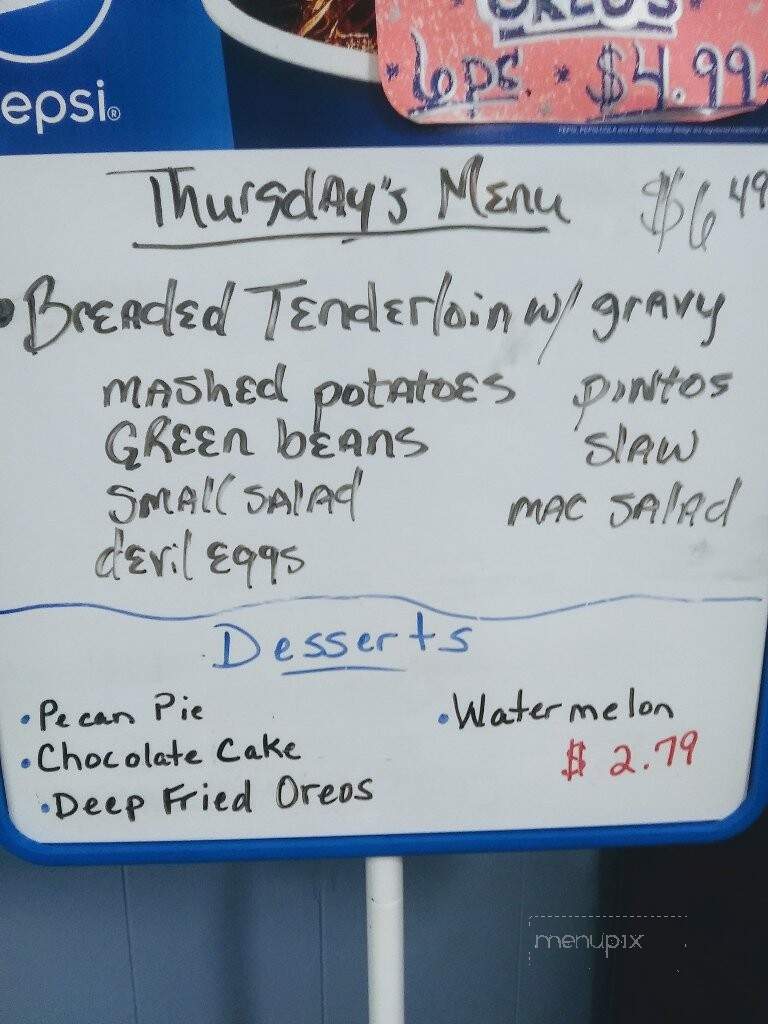 OREO'S
6pc. * $4.99
epsi®
Thursday's Menu $6.49
• Breaded Tenderloin w/ gravy
mashed potatoes pintos
Green beans slaw
small salad mac salad
devil eggs
Desserts
• Pecan Pie • Watermelon
• Chocolate Cake $ 2.79
• Deep Fried Oreos
menupix